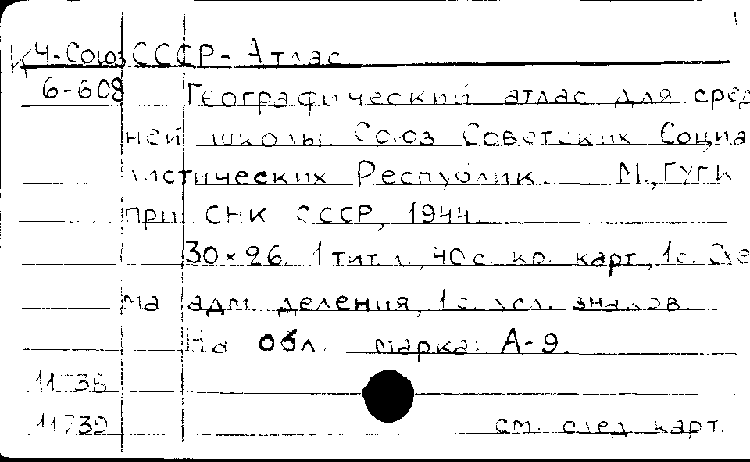 К4-Союз СССР - Атлас
6-608 Географический атлас для сред
ней школы. Союз Советских Социа
листических Республик. М., ГУГК
при СНК СССР, 1944.
30×26. 1 тит. л., 40 с. кр. карт, 1 с. Схе
ма адм. деления, 1 с. усл. знаков.
На обл. марка: А-9.
см. след. карт.